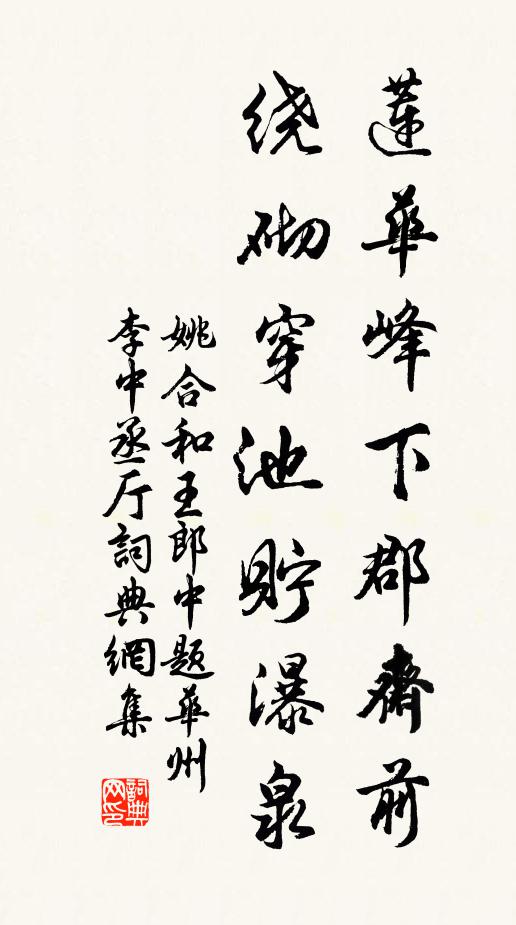 蓮華峰下郡齋前
绕砌穿池貯瀑泉
姚合和王郎中题華州
李中丞厅詞典網集
詞典
网印